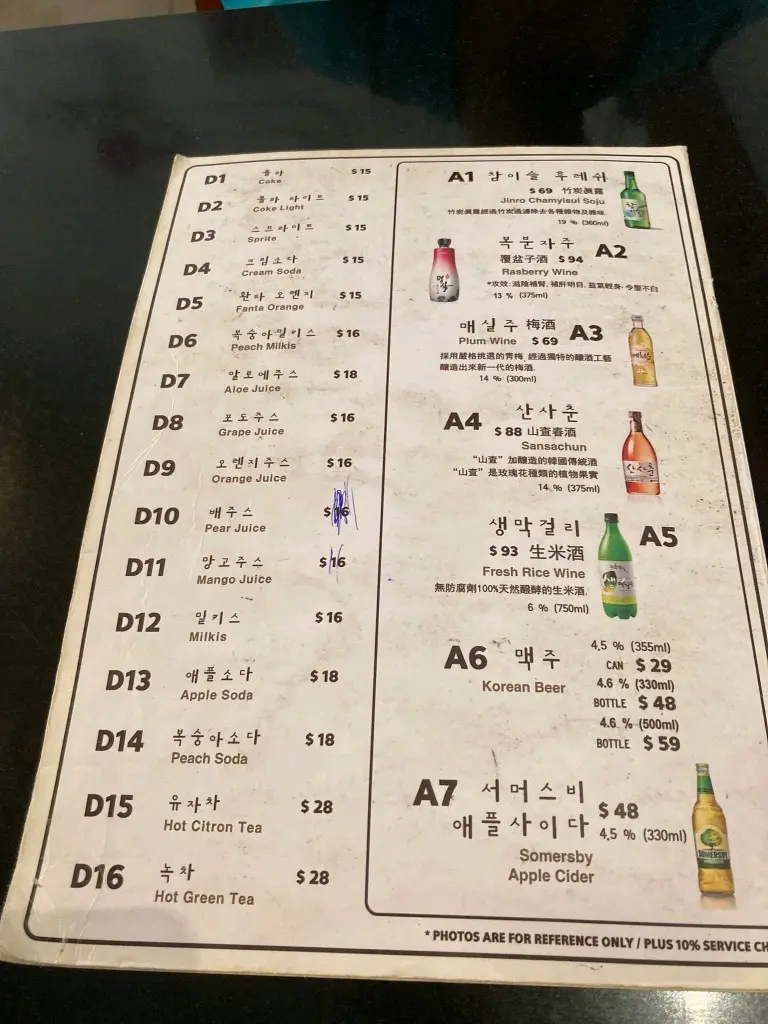 D1 콜라 $ 15
Coke
D2 콜라 라이트 $ 15
Coke Light
D3 스프라이트 $ 15
Sprite
D4 크림소다 $ 15
Cream Soda
D5 환타 오렌지 $ 15
Fanta Orange
D6 복숭아밀키스 $ 16
Peach Milkis
D7 알로에주스 $ 18
Aloe Juice
D8 포도주스 $ 16
Grape Juice
D9 오렌지주스 $ 16
Orange Juice
D10 배주스 $ 16
Pear Juice
D11 망고주스 $ 16
Mango Juice
D12 밀키스 $ 16
Milkis
D13 애플소다 $ 18
Apple Soda
D14 복숭아소다 $ 18
Peach Soda
D15 유자차 $ 28
Hot Citron Tea
D16 녹차 $ 28
Hot Green Tea
A1 참이슬 후레쉬
$ 69 竹炭眞露
Jinro Chamyisui Soju
竹炭眞露經過竹炭過濾除去各種雜物及雜味.
19 % (360ml)
복분자주 A2
覆盆子酒 $ 94
Rasberry Wine
*攻效: 滋陰補腎, 補肝明目, 益氣輕身, 令髮不白
13 % (375ml)
매실주 梅酒 A3
Plum Wine $ 69
採用嚴格挑選的青梅, 經過獨特的釀酒工藝
釀造出來新一代的梅酒.
14 % (300ml)
A4 산사춘
$ 88 山查春酒
Sansachun
“山查” 加釀造的韓國傳統酒
“山查” 是玫瑰花種類的植物果實
14 % (375ml)
산사춘
생막걸리 A5
$ 93 生米酒
Fresh Rice Wine
無防腐劑100%天然醱酵的生米酒.
6 % (750ml)
A6 맥주
Korean Beer
4.5 % (355ml)
CAN $ 29
4.6 % (330ml)
BOTTLE $ 48
4.6 % (500ml)
BOTTLE $ 59
A7 서머스비
애플사이다
$ 48
4.5 % (330ml)
Somersby
Apple Cider
SOMERSBY
* PHOTOS ARE FOR REFERENCE ONLY / PLUS 10% SERVICE CH